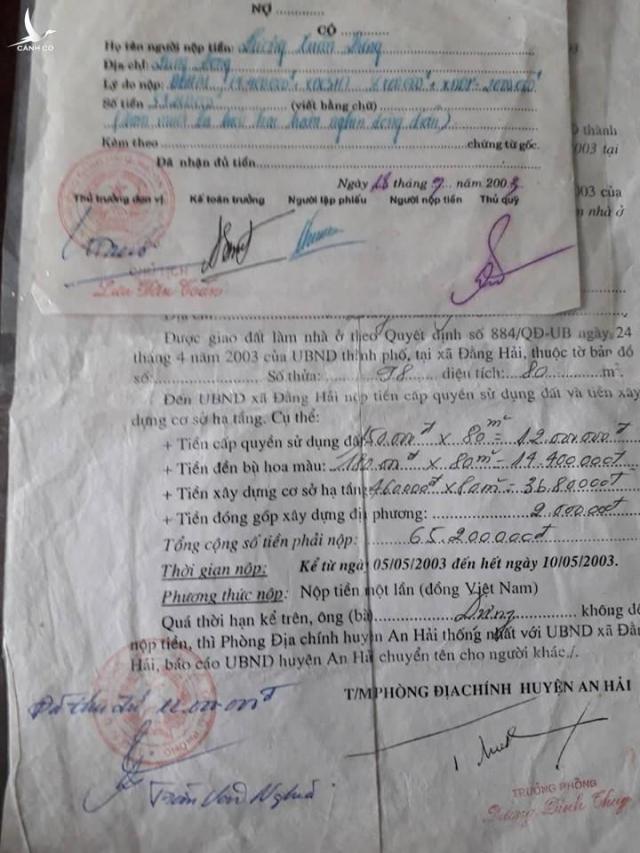 CÁNH CÒ
NỢ
CÓ
Họ tên người nộp tiền: Lương Xuân
Địa chỉ:
Lý do nộp: 2000.000đ
Số tiền (viết bằng chữ)
hai trăm nghìn đồng chẵn)
Kèm theo chứng từ gốc.
Đã nhận đủ tiền.
Ngày 28 tháng 7 năm 2003
Thủ trưởng đơn vị Kế toán trưởng Người lập phiếu Người nộp tiền Thủ quỹ
CHỦ TỊCH
thành
2003 tại
003 của
nhà ở
Được giao đất làm nhà ở theo Quyết định số 884/QĐ-UB ngày 24
tháng 4 năm 2003 của UBND thành phố, tại xã Đằng Hải, thuộc tờ bản đồ
số: Số thửa: 98 diện tích: 80 m².
Đến UBND xã Đằng Hải nộp tiền cấp quyền sử dụng đất và tiền xây
dựng cơ sở hạ tầng. Cụ thể:
+ Tiền cấp quyền sử dụng đất 150.000đ x 80m² = 12.000.000đ
+ Tiền đền bù hoa màu: 180.000đ x 80m² = 14.400.000đ
+ Tiền xây dựng cơ sở hạ tầng 460000đ x 80m² = 36.800000đ
+ Tiền đóng góp xây dựng địa phương: 2.000.000đ
Tổng cộng số tiền phải nộp: 65.200.000đ
Thời gian nộp: Kể từ ngày 05/05/2003 đến hết ngày 10/05/2003.
Phương thức nộp: Nộp tiền một lần (đồng Việt Nam)
Quá thời hạn kể trên, ông (bà) Dũng không
nộp tiền, thì Phòng Địa chính huyện An Hải thống nhất với UBND xã
Hải, báo cáo UBND huyện An Hải chuyển tên cho người khác./.
T/M PHÒNG ĐỊA CHÍNH HUYỆN AN HẢI
Đã thu đủ
Trần Văn Nghĩa
TRƯỞNG PHÒNG
Đình